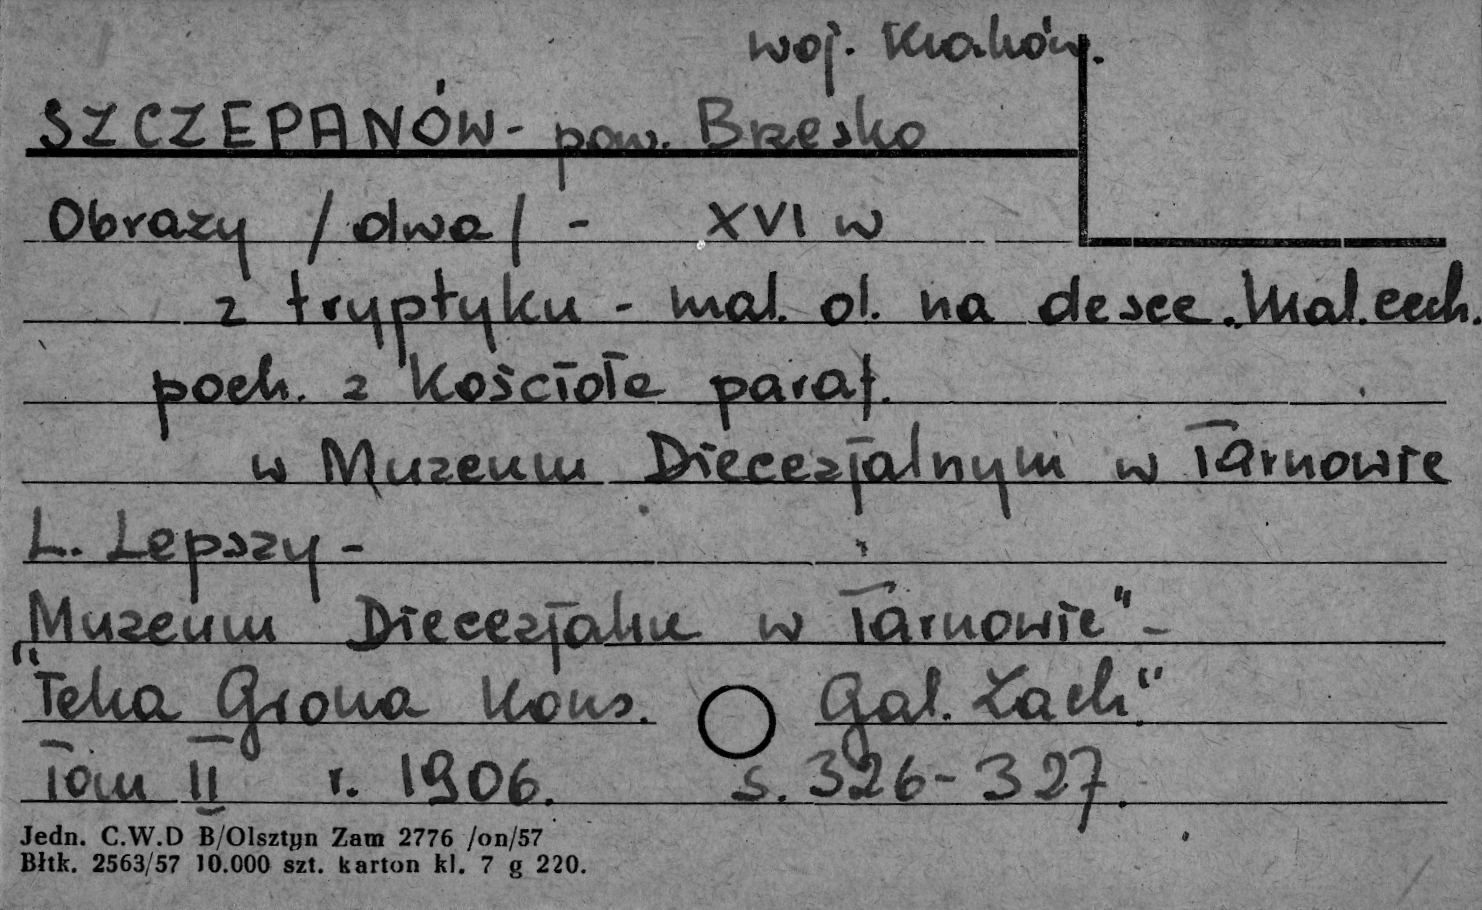 woj. Kraków.
SZCZEPANÓW - pow. Brzesko
Obrazy /dwa/ - XVI w
z tryptyku - mal. ol. na desce. Mal. cech.
poch. z Kościoła paraf.
w Muzeum Diecezjalnym w Tarnowie
L. Lepszy -
Muzeum Diecezjalne w Tarnowie" -
"Teka Grona Kons. Gal. Zach."
Tom II r. 1906. s. 326-327.
Jedn. C.W.D B/Olsztyn Zam 2776 /on/57
Błtk. 2563/57 10.000 szt. karton kl. 7 g 220.